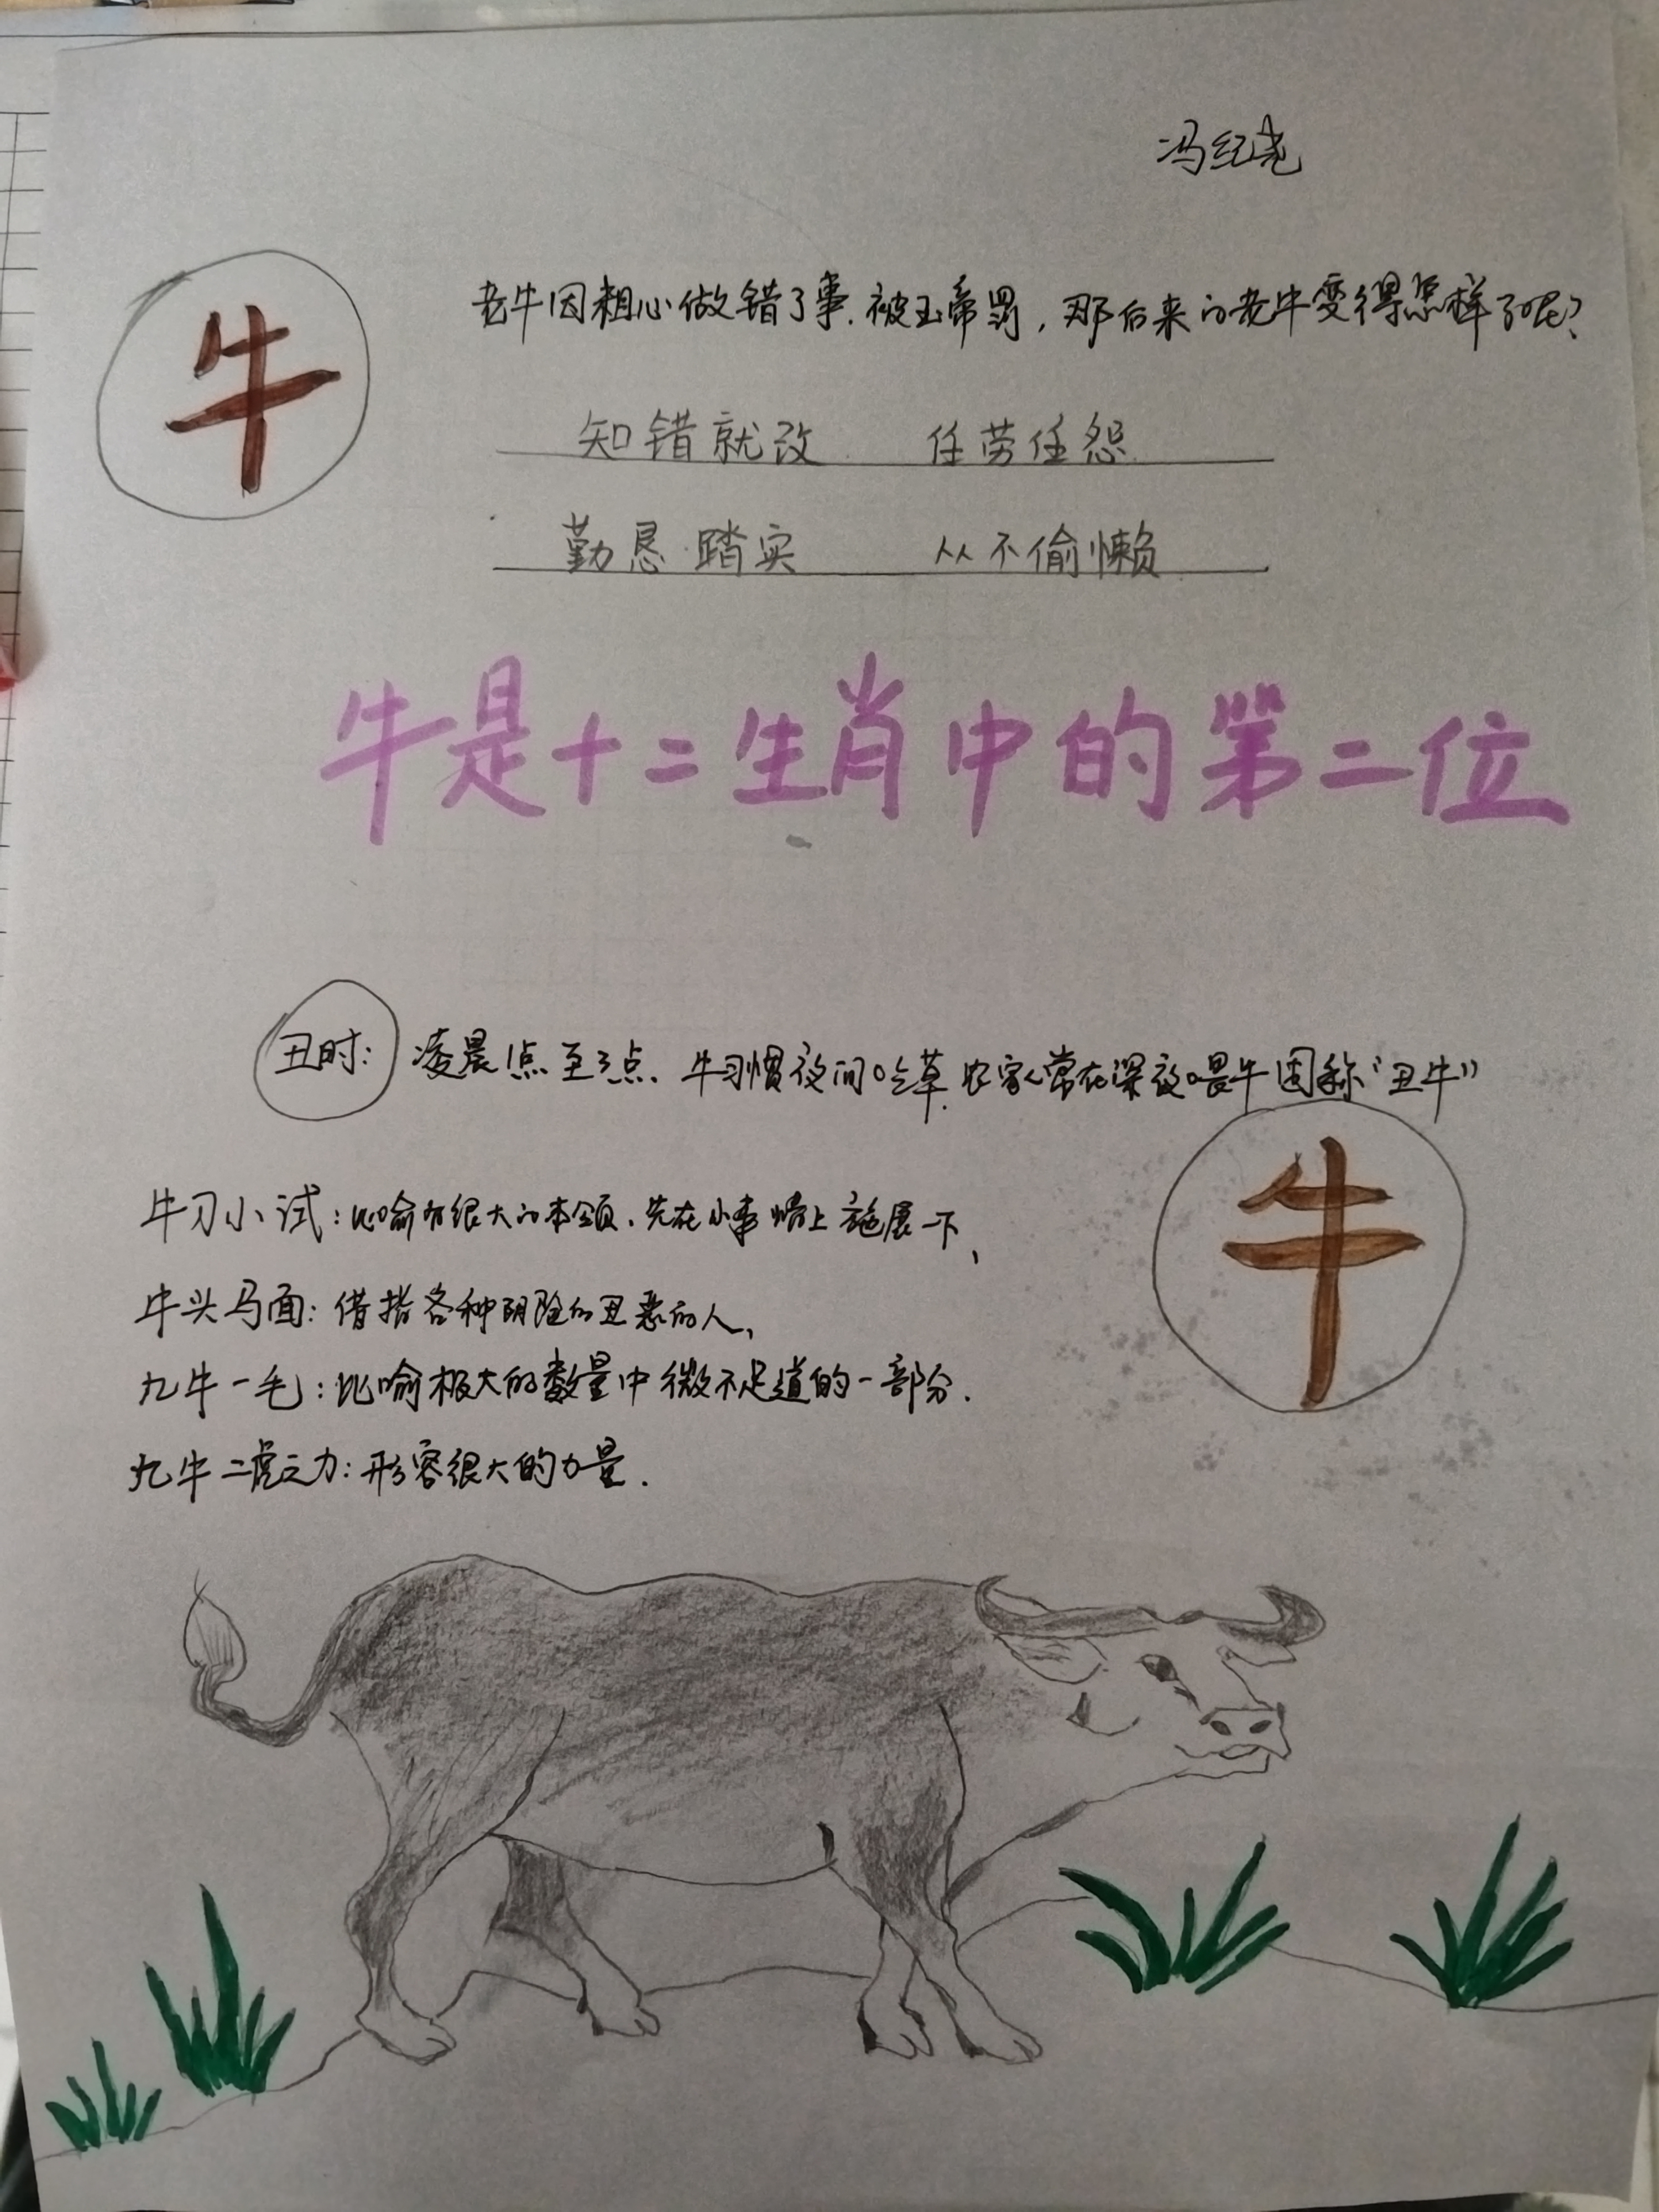 冯纪尧
牛
老牛因粗心做错了事.被玉帝罚,那后来的老牛变得怎样了呢?
知错就改 任劳任怨
勤恳踏实 从不偷懒
牛是十二生肖中的第二位
丑时: 凌晨1点至3点.牛习惯夜间吃草.农家人常在深夜喂牛因称“丑牛”
牛
牛刀小试:比喻有很大的本领.先在小事情上施展一下、
牛头马面:借指各种阴险的丑恶的人、
九牛一毛:比喻极大的数量中微不足道的一部分.
九牛二虎之力:形容很大的力量.